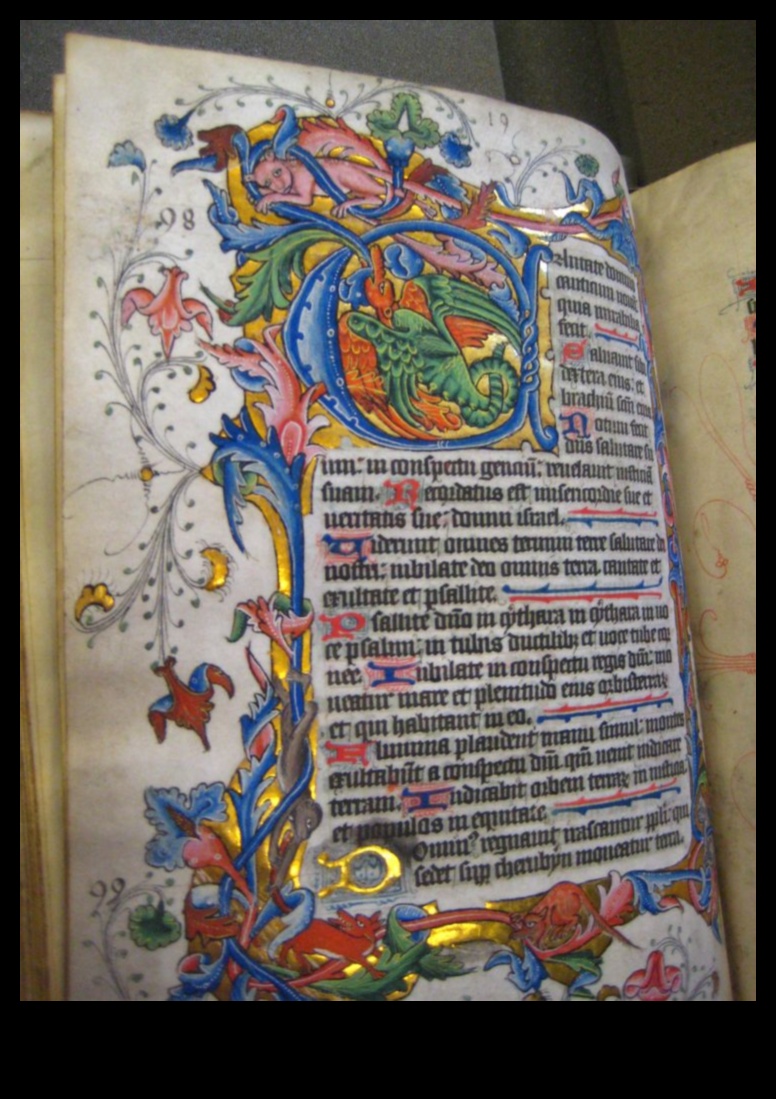 19
98
Cantate domino
canticum nouum
quia mirabilia
fecit
Saluauit sibi
dextera eius: et
brachiū scm eius
Notum fecit
dns salutare su
um: in conspectu genciū: reuelauit iusticiā
suam. Recordatus est misericordie sue et
ueritatis sue: domui israel.
Uiderunt omnes termini terre salutare dei
nostri: iubilate deo omnis terra cantate et
exultate et psallite.
Psallite dño in cythara in cythara in uo
ce psalmi: in tubis ductilibȝ et uoce tube cor
nee. Iubilate in conspectu regis dñi: mo
ueatur mare et plenitudo eius orbis terraȝ
et qui habitant in eo.
Flumina plaudent manu simul: montes
exultabūt a conspectu dñi qm̄ uenit iudicare
terram. Iudicabit orbem terraȝ in iusticia
et populos in equitate.
Dominꝰ regnauit irascantur ppli: qui
99
sedet sup cherubyn moueatur terra.